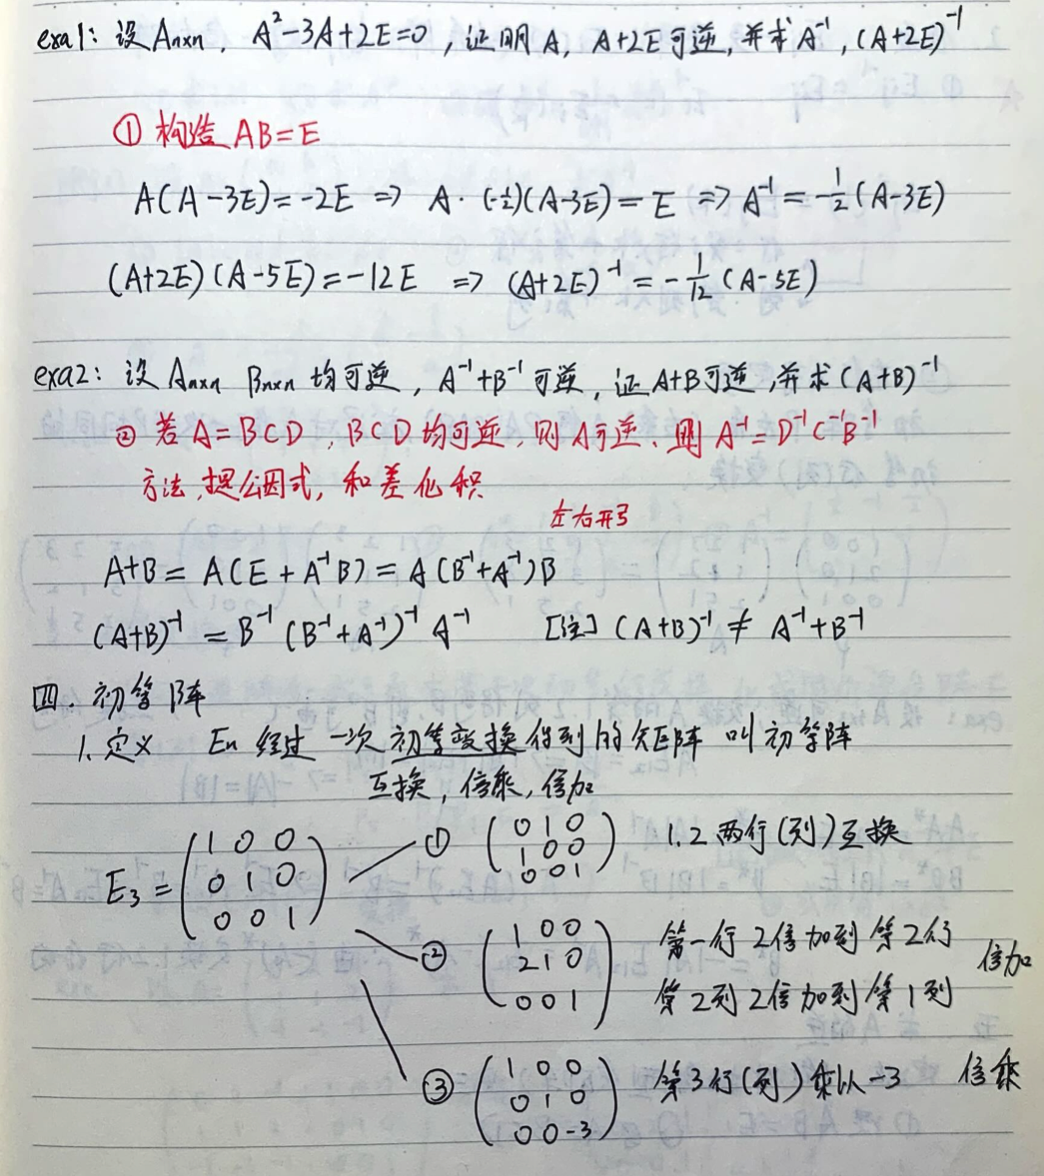 exa1: 设 Aₙₓₙ, A²-3A+2E=0, 证明 A, A+2E 可逆, 并求 A⁻¹, (A+2E)⁻¹
① 构造 AB=E
A(A-3E)=-2E ⇒ A·(-½)(A-3E)=E ⇒ A⁻¹=-½(A-3E)
(A+2E)(A-5E)=-12E ⇒ (A+2E)⁻¹=-1/12(A-5E)
exa2: 设 Aₙₓₙ Bₙₓₙ 均可逆, A⁻¹+B⁻¹ 可逆, 证 A+B 可逆, 并求 (A+B)⁻¹
② 若 A=BCD, BCD 均可逆, 则 A可逆、则 A⁻¹=D⁻¹C⁻¹B⁻¹
方法, 提公因式, 和差化积
左右开弓
A+B=A(E+A⁻¹B)=A(B⁻¹+A⁻¹)B
(A+B)⁻¹=B⁻¹(B⁻¹+A⁻¹)⁻¹A⁻¹ [注] (A+B)⁻¹≠A⁻¹+B⁻¹
四. 初等阵
1. 定义 Eₙ 经过一次初等变换得到的矩阵 叫初等阵
互换, 倍乘, 倍加
E₃= (1 0 0
0 1 0
0 0 1)
① (0 1 0
1 0 0
0 0 1) 1.2 两行(列)互换
② (1 0 0
2 1 0
0 0 1) 第一行 2倍加到 第2行
第2列 2倍加到 第1列
倍加
③ (1 0 0
0 1 0
0 0 -3) 第3行(列)乘以 -3 倍乘